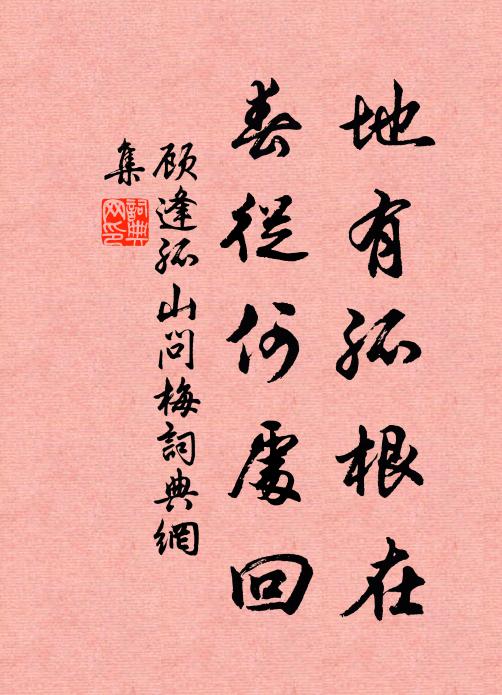 地有孤根在
春從何處回
顾逢孤山问梅詞典網
集
詞典
网印